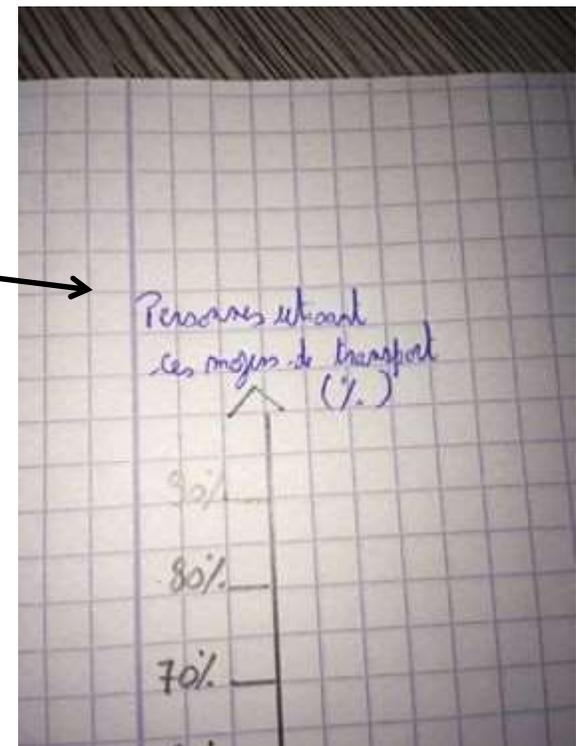 Personnes utilisant
ces moyens de transport
(%)
90%
80%
70%